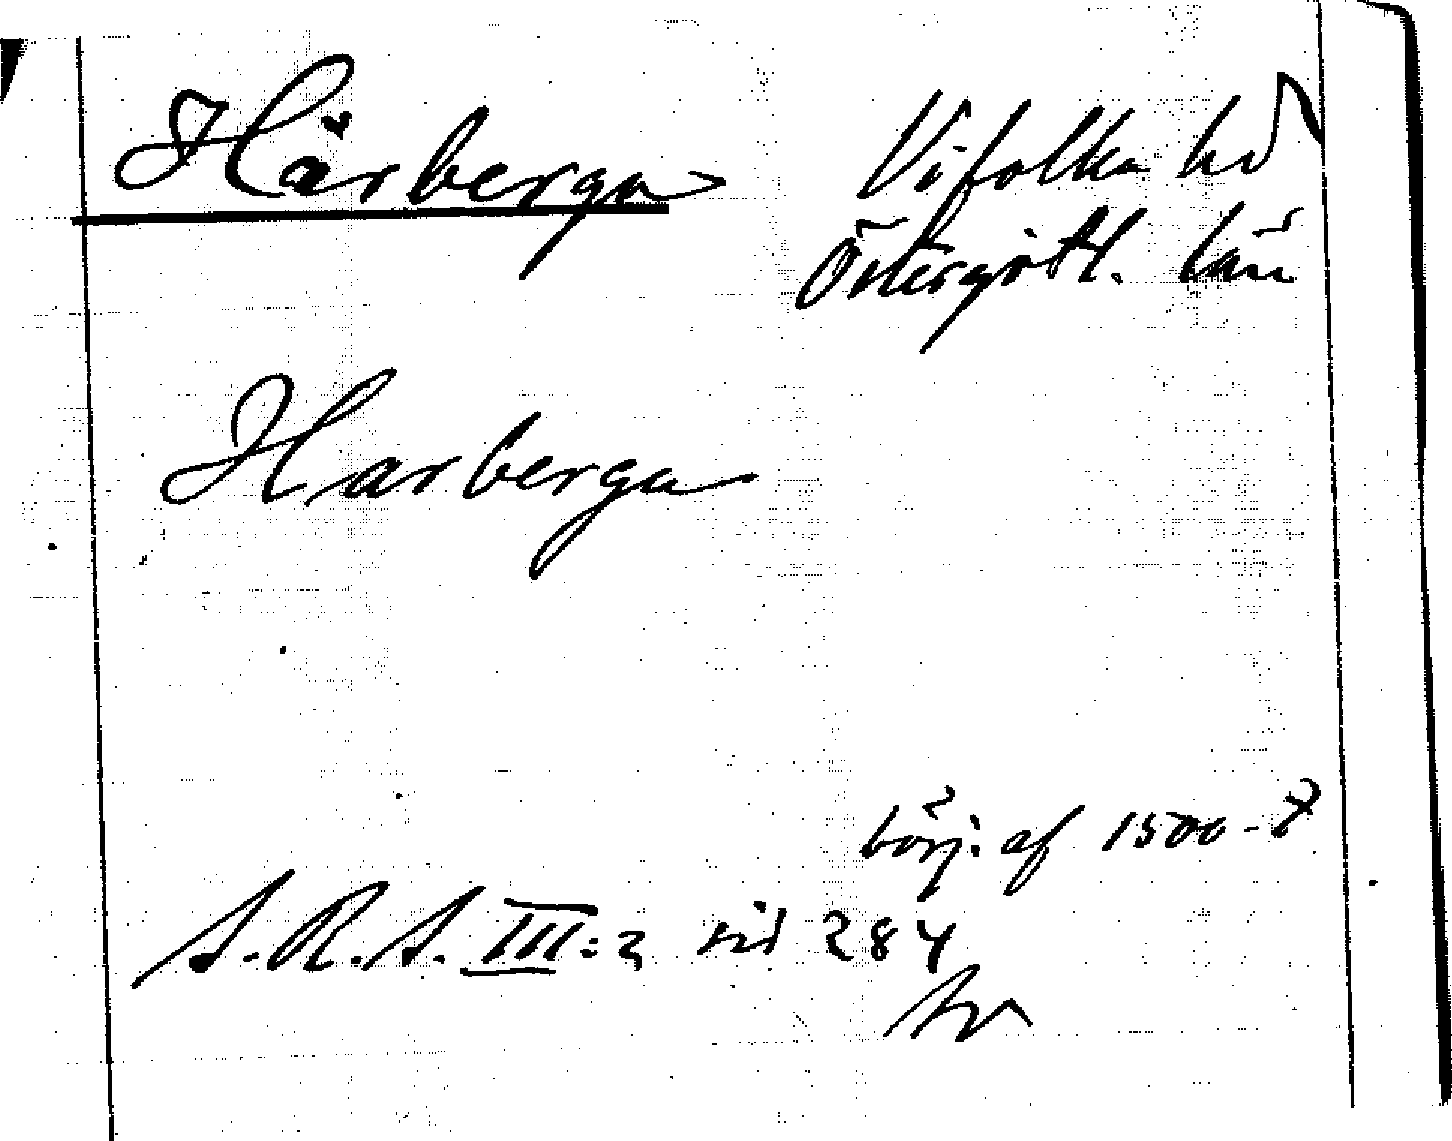 Hårberga
Vifolka hd
Östergötl. län
Harberga
börj. af 1500-t
S.R.S. III:2 sid 284